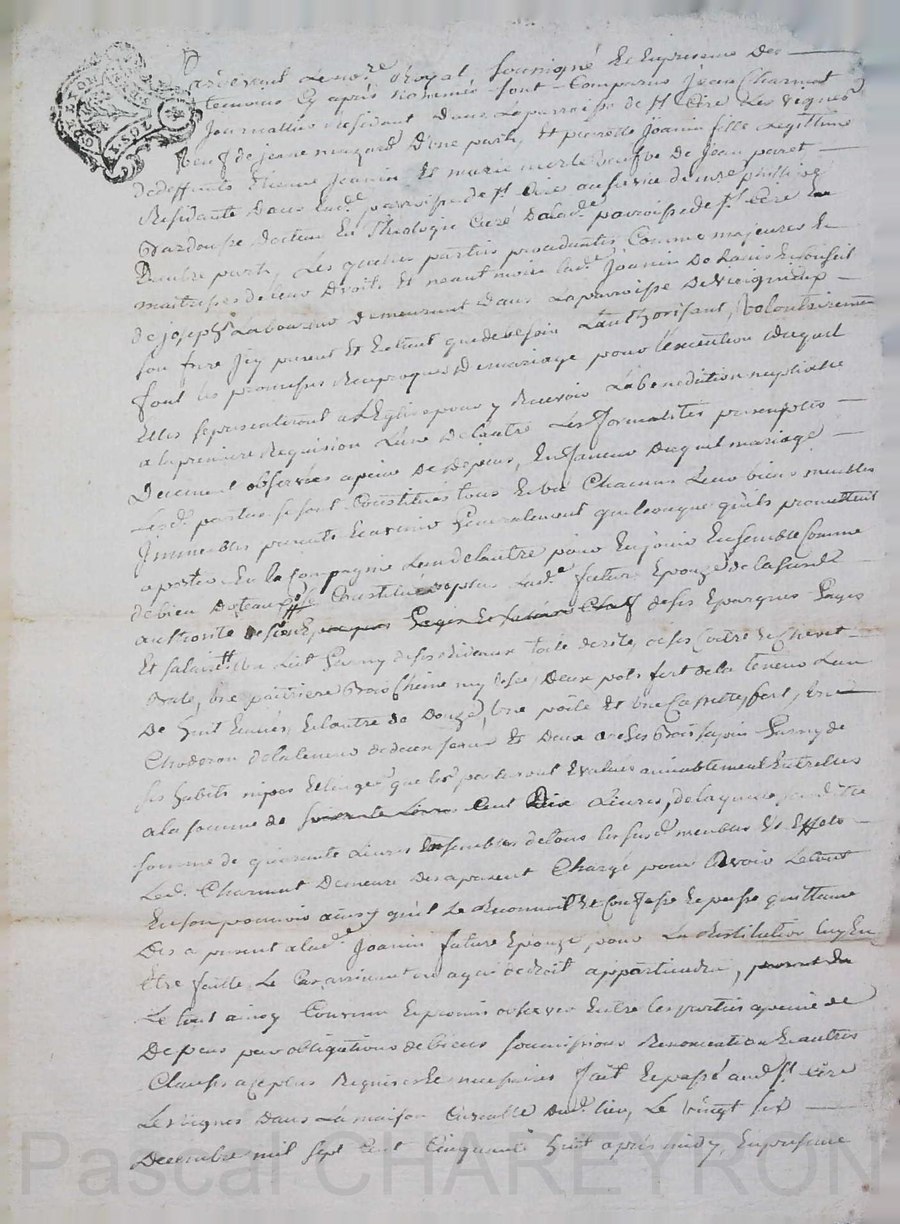 Pardevant Le no.re Royal, soussigné Et En presence Des
temoins Cy après nommés sont Comparus Jean Charmat
Journallier Residant Dans La parroisse de St Cire Les vignes
veuf de Janne D'une part, Et pierrette Joanin fille Legittime
de deffunts Etienne Joanin Et marie merle veufve De Jean paret
Residante Dans lad.e parroisse de St Cire au service de mre philippe
Docteur En Theologie Curé De lad.e parroisse de St Cire
D'autre part, Les quelles parties procedantes Comme majeures Et
maitresses de leur Droits Et neant moins lad.e Joanin De Lavis Et Conseil
de Joseph Demeurant Dans La parroisse De
son frere Icy present Et Entant que de besoin L'authorisant, volontairement
font les promesses Reciproques De mariage pour l'execution Duquel
Elles se presenteront a L'Eglise pour y Recevoir La benediction nuptialle
a la premiere Requision L'une De l'autre Les formalités prescriptes
Decement observées a peine De Depens, En faveur Duquel mariage
Lesd. parties se sont Constitués tous Et un Chacuns Leurs biens meubles
Immeubles presents Et avenir Generalement quelconque qu'ils promettent
aporter En La Compagnie L'un de l'autre pour En jouir Ensemble Comme
de bien Doteaux Constitué De plus Lad.e future Epouze de la
authorité de ses Epargnes Gages
Et salaire Un Lit Garny de ses Rideaux toile de rite, a ses Contre Et Chevet
Une pottiere Bois Chene my Usée, Deux pots fert de la teneur L'un
De huit Ecuies, Et l'autre de Douze, Une poële Et Une Cassette fert, Un
Choderon de la teneur de deux seaux Et Deux arches Bois sapin Garny de
ses habits nipes Et linges que les parties ont Evalués amiablement Entrelles
a la somme de Cent Dix Livres, de laquelle susditte
somme de quarante Livres Ensembles de tous les susd. meubles Et Effets
Led. Charmat Demeure Des apresent Chargé pour L'avoir Le tout
En son pouvoir ainsy qu'il Le Reconnoit Et Confesse Et passe quittance
Des a present a lad.e Joanin future Epouze, pour La Restitution luy En
Etre faitte Le Cas arrivant ou a qui de droit appartiendra,
Le tout ainsy Convenu Et promis observer Entre les parties a peine de
Depens par obligations de biens soumissions Renonciation Et autres
Clauses a ce plus Requises Et necessaires fait Et passé aud. St Cire
Les vignes Dans La maison Curialle Du d. lieu, Le vingt six
Decembre mil sept Cent Cinquante huit après midy, En presence
Pascal CHAREYRON